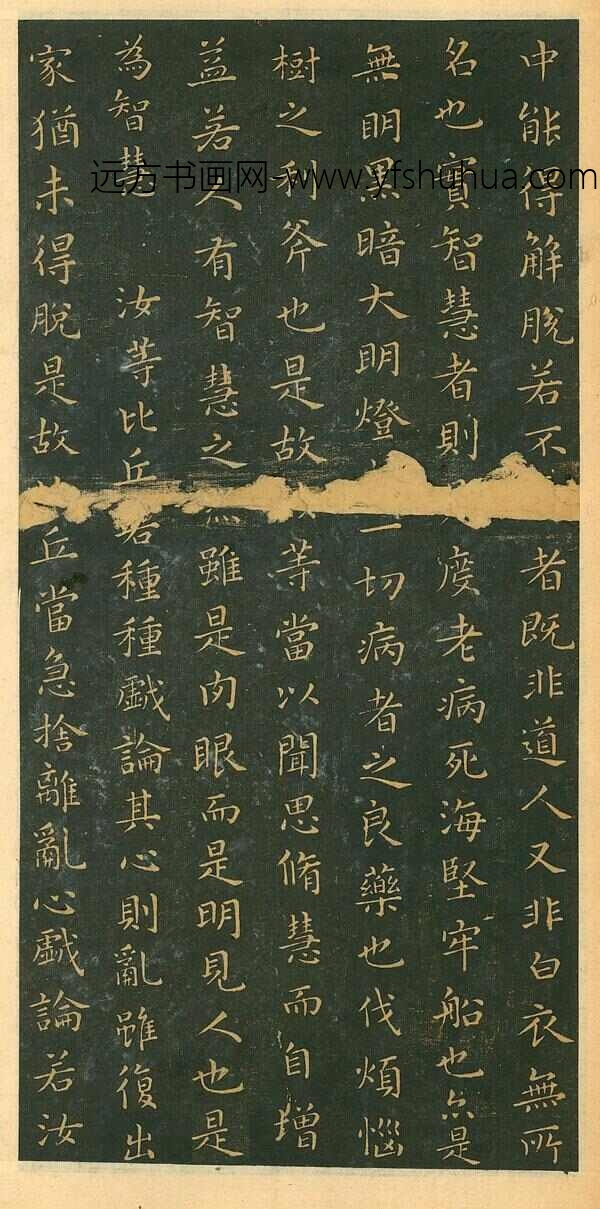 中能得解脱若不者既非道人又非白衣無所
名也實智慧者則度老病死海堅牢船也亦是
無明黑暗大明燈一切病者之良藥也伐煩惱
樹之利斧也是故等當以聞思脩慧而自增
益若人有智慧之雖是肉眼而是明見人也是
為智慧 汝等比丘若種種戲論其心則亂雖復出
家猶未得脱是故丘當急捨離亂心戲論若汝
远方书画网-www.yfshuhua.com